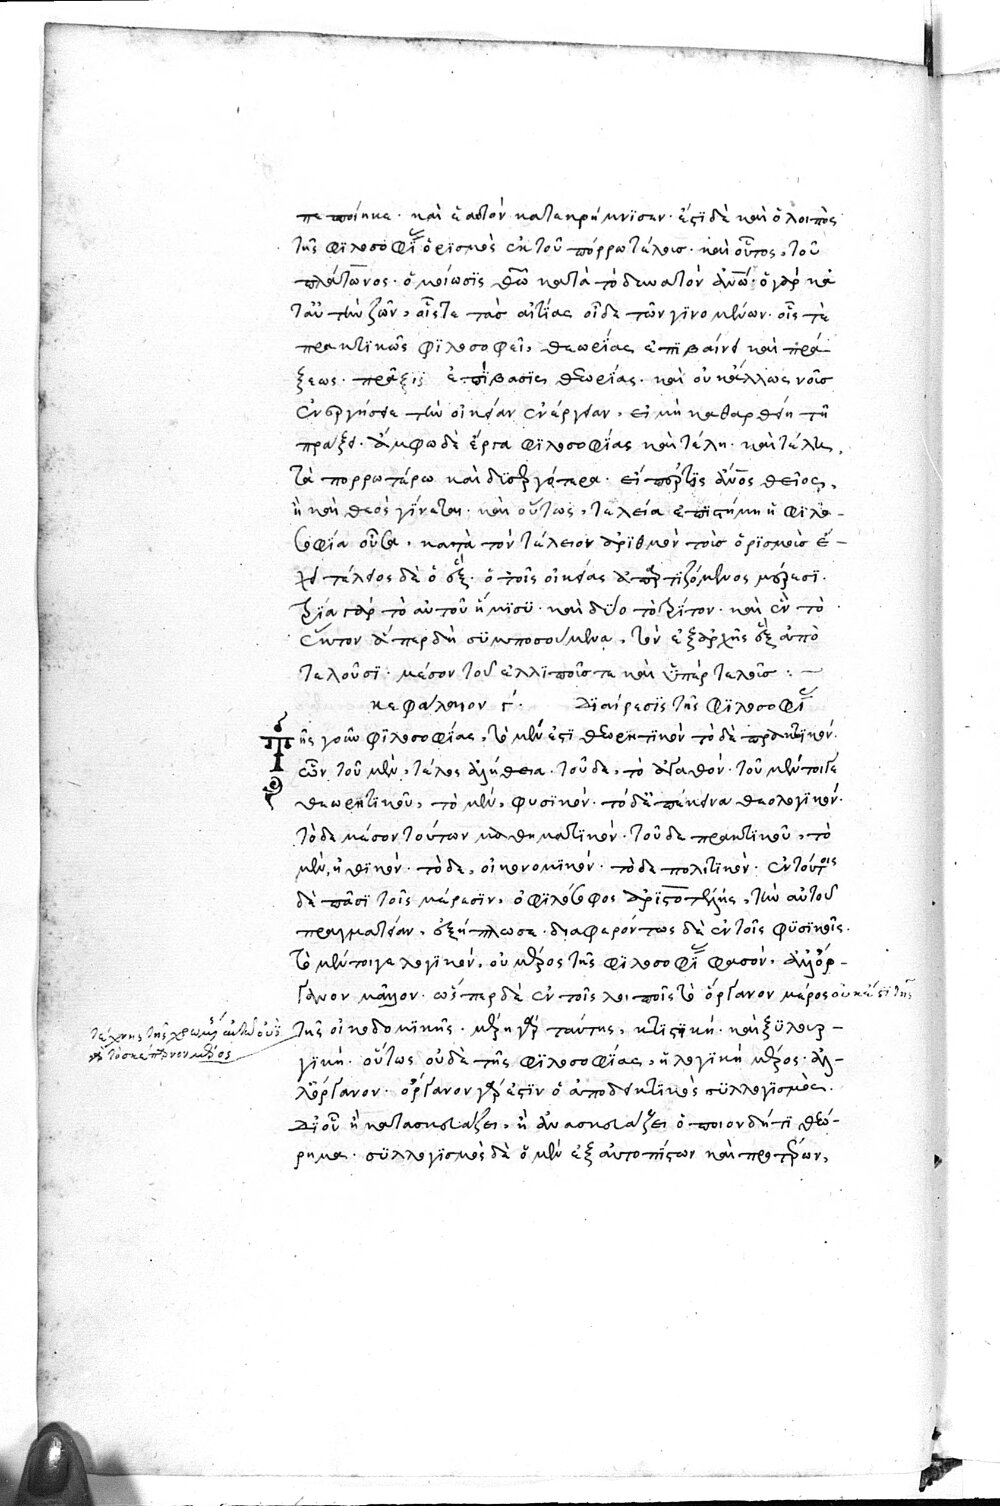 πεποίηκε· καὶ ἑαυτὸν κατεκρήμνισεν· ἔστι δὲ καὶ ὁ λοιπὸς
τῆς φιλοσοφί ὁρισμὸς ἐκ τοῦ πόρρω τέλους· καὶ οὗτος, τοῦ
πλάτωνος· ὁμοίωσις θεῶ κατὰ τὸ δυνατὸν ἀνω· ὁ γὰρ κα
ταὐτὴν ζῶν, οἶστε τὰς αἰτίας οἶδε τῶν γινομένων· οἷς τε
πρακτικῶς φιλοσοφεῖ, θεωρίας ἐπιβαίνει καὶ πρά
ξεως· πρᾶξις ἐπίβασις θεωρίας· καὶ οὐκ ἄλλως νοῦς
ἐνεργήσειε τὴν οἰκείαν ἐνέργειαν, εἰ μὴ καθαρθείη τῆ
πράξει· ἄμφω δὲ ἔργα φιλοσοφίας καὶ τέλη· καὶ τέλη,
τὰ πορρωτέρω καὶ δυσεργότερα· εἴπερ τις ἄνος θεῖος,
ἢ καὶ θεὸς γίνεται· καὶ οὕτως, τελεία ἐπιστήμη ἡ φιλο-
σοφία οὖσα, κατὰ τὸν τέλειον ἀριθμὸν τοὺς ὁρισμοὺς ἔ-
χει τέλειος δὲ ὁ ἓξ· ὁ τοῖς οἰκείοις ἀπαρτιζόμενος μέρεσι·
τρία γὰρ τὸ αὐτοῦ ἥμισυ· καὶ δύο τὸ τρίτον· καὶ ἓν τὸ
ἕκτον ἅπερ δὴ συμποσούμενα, τὸν ἐξ ἀρχῆς ἓξ ἀπο
τελοῦσι· μέσον τοῦ ἐλλιποῦς τε καὶ ὑπερτελοῦς :
κεφάλαιον ϛ΄. Διαίρεσις τῆς φιλοσοφί
Τῆς γοῦν φιλοσοφίας, τὸ μὲν ἐστι θεωρητικὸν τὸ δὲ πρακτικόν·
ὧν τοῦ μὲν, τέλος ἀλήθεια· τοῦ δὲ, τὸ ἀγαθόν· τοῦ μέν τοι γε
θεωρητικοῦ, τὸ μὲν, φυσικόν· τὸ δὲ ἐπέκεινα θεολογικόν·
τὸ δὲ μέσον τούτων μαθηματικόν· τοῦ δὲ πρακτικοῦ, τὸ
μὲν, ἠθικόν· τὸ δὲ, οἰκονομικόν· τὸ δὲ πολιτικόν· ἐν τούτοις
δὲ πᾶσι τοῖς μέρεσιν, ὁ φιλόσοφος ἀριστοτέλης, τὴν αὐτοῦ
πραγματείαν, ἐξήπλωσε· διαφερόντως δὲ ἐν τοῖς φυσικοῖς.
τὸ μέντοιγε λογικὸν, οὐ μέρος τῆς φιλοσοφί φασὶν, ἀλλ' ὄρ-
γανον μᾶλλον· ὥσπερ δὲ ἐν τοῖς λοιποῖς τὸ ὄργανον μέρος οὐκ ἔστι τῆς
τῆς οἰκοδομικῆς· μέρη γὰρ ταύτης, κτιστικὴ· καὶ ξυλουρ-
γική· οὕτως οὐδὲ τῆς φιλοσοφίας, ἡ λογικὴ μέρος· ἀλ-
λ' ὄργανον· ὄργανον γάρ ἐστιν ὁ ἀποδεικτικὸς συλλογισμὸς.
δι' οὗ ἢ κατασκευάζει, ἢ ἀνασκευάζει ὁποιονδήτι θεώ-
ρημα· συλλογισμὸς δὲ ὁ μὲν ἐξ αὐτοπίστων καὶ προτέρων,
τέχνης τῆς χρωμένης αὐτῶ οὐδὲ
τὸ σκέπαρνον μέρος